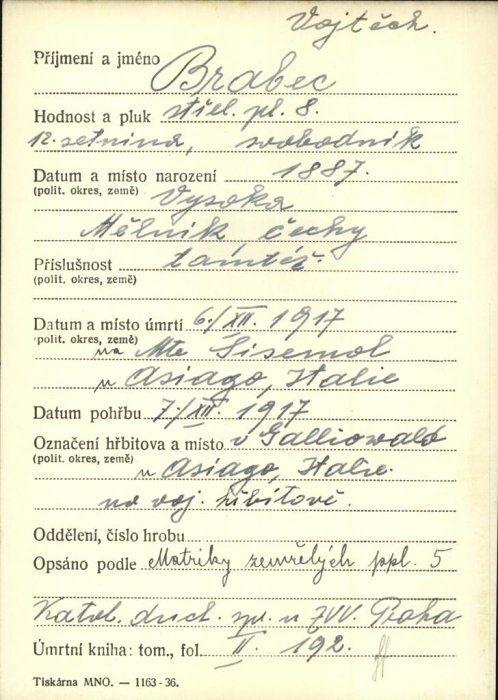 Vojtěch.
Příjmení a jméno Brabec
Hodnost a pluk střel. pl. 8.
12. setnina, svobodník
Datum a místo narození 1887.
(polit. okres, země) Vysoka
Mělník, Čechy
Příslušnost tamtéž.
(polit. okres, země)
Datum a místo úmrtí 6./XII. 1917
polit. okres, země) na Mte Sisemol
u Asiago, Italie
Datum pohřbu 7./XII. 1917
Označení hřbitova a místo v Galliowald
(polit. okres, země) u Asiago, Italie.
na voj. hřbitově.
Oddělení, číslo hrobu
Opsáno podle Matriky zemřelých ppl. 5
Katol. duch. spr. u ZVV. Praha
Úmrtní kniha: tom., fol. II. 192.
Tiskárna MNO. — 1163-36.